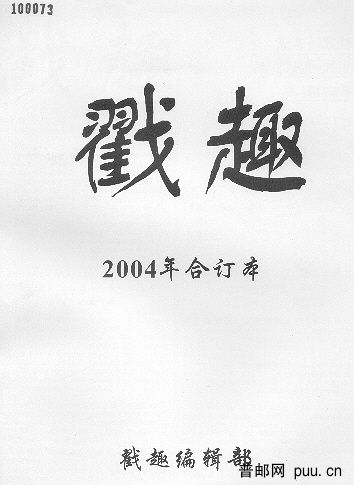 100073
戳趣
2004年合订本
戳趣编辑部
普邮网 puu.cn